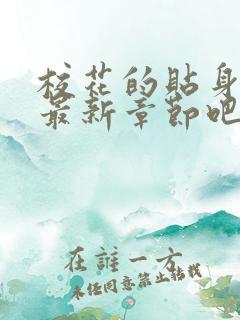 校花的贴身
最新章节吧
在誰一方
未经同意禁止转载